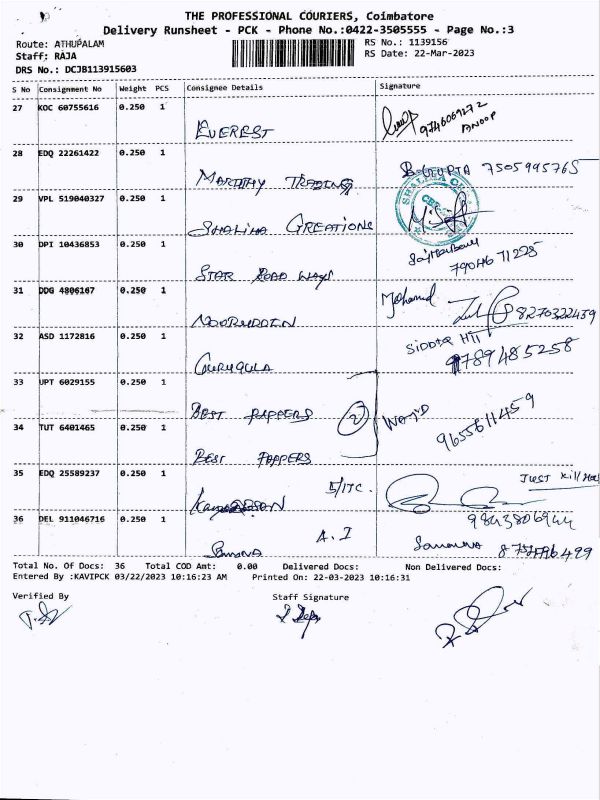 THE PROFESSIONAL COURIERS, Coimbatore
Delivery Runsheet - PCK - Phone No.:0422-3505555 - Page No.:3
Route: ATHUPALAM
RS No.: 1139156
Staff: RAJA
RS Date: 22-Mar-2023
DRS No.: DCJB113915603
S No Consignment No Weight PCS Consignee Details Signature
27 KOC 60755616 0.250 1
EVEREST 9746069272
ANOOP
28 EDQ 22261422 0.250 1
TRADING 7505995765
29 VPL 519040327 0.250 1
SHALIHA CREATIONS
30 DPI 10436853 0.250 1
STAR ROAD WAYS
31 DDG 4806167 0.250 1
Mohamed
NOORUDDIN 8270322459
32 ASD 1172816 0.250 1
9789485258
33 UPT 6029155 0.250 1
BEST PEPPERS 2
34 TUT 6401465 0.250 1 9655611459
BEST PEPPERS
35 EDQ 25589237 0.250 1
5/ITC.
36 DEL 911046716 0.250 1
A.I
Total No. Of Docs: 36 Total COD Amt: 0.00 Delivered Docs: Non Delivered Docs:
Entered By :KAVIPCK 03/22/2023 10:16:23 AM Printed On: 22-03-2023 10:16:31
Verified By Staff Signature